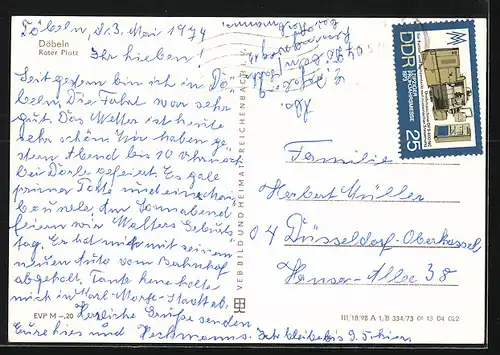 Döbeln
Roter Platz
Döbeln, d. 3. Mai 1974
Ihr Lieben!
Seit gestern bin ich in Dö-
beln. Die Fahrt war sehr
gut. Das Wetter ist heute
sehr schön. Wir haben ge-
stern Abend bis 10 Uhr noch
bei gefeiert. Es gab
prima Torte und eine
bowle. Am Sonnabend
feiern wir Walters Geburts-
tag. Er hat mich mit seinem
neuen Auto vom Bahnhof
abgeholt. Tante Lene holte
mich in Karl-Marx-Stadt ab.
Herzliche Grüße senden
Eure und Ich bleibe bis 9. hier.
EVP M –,20
VEB BILD UND HEIMAT REICHENBACH I. V.
DDR
LEIPZIGER
FRÜHJAHRSMESSE
1974
25
Familie
Herbert Müller
04 Düsseldorf-Oberkassel
Hansa-Allee 38
III/18/98 A 1, B 334/73 01 13 04 022